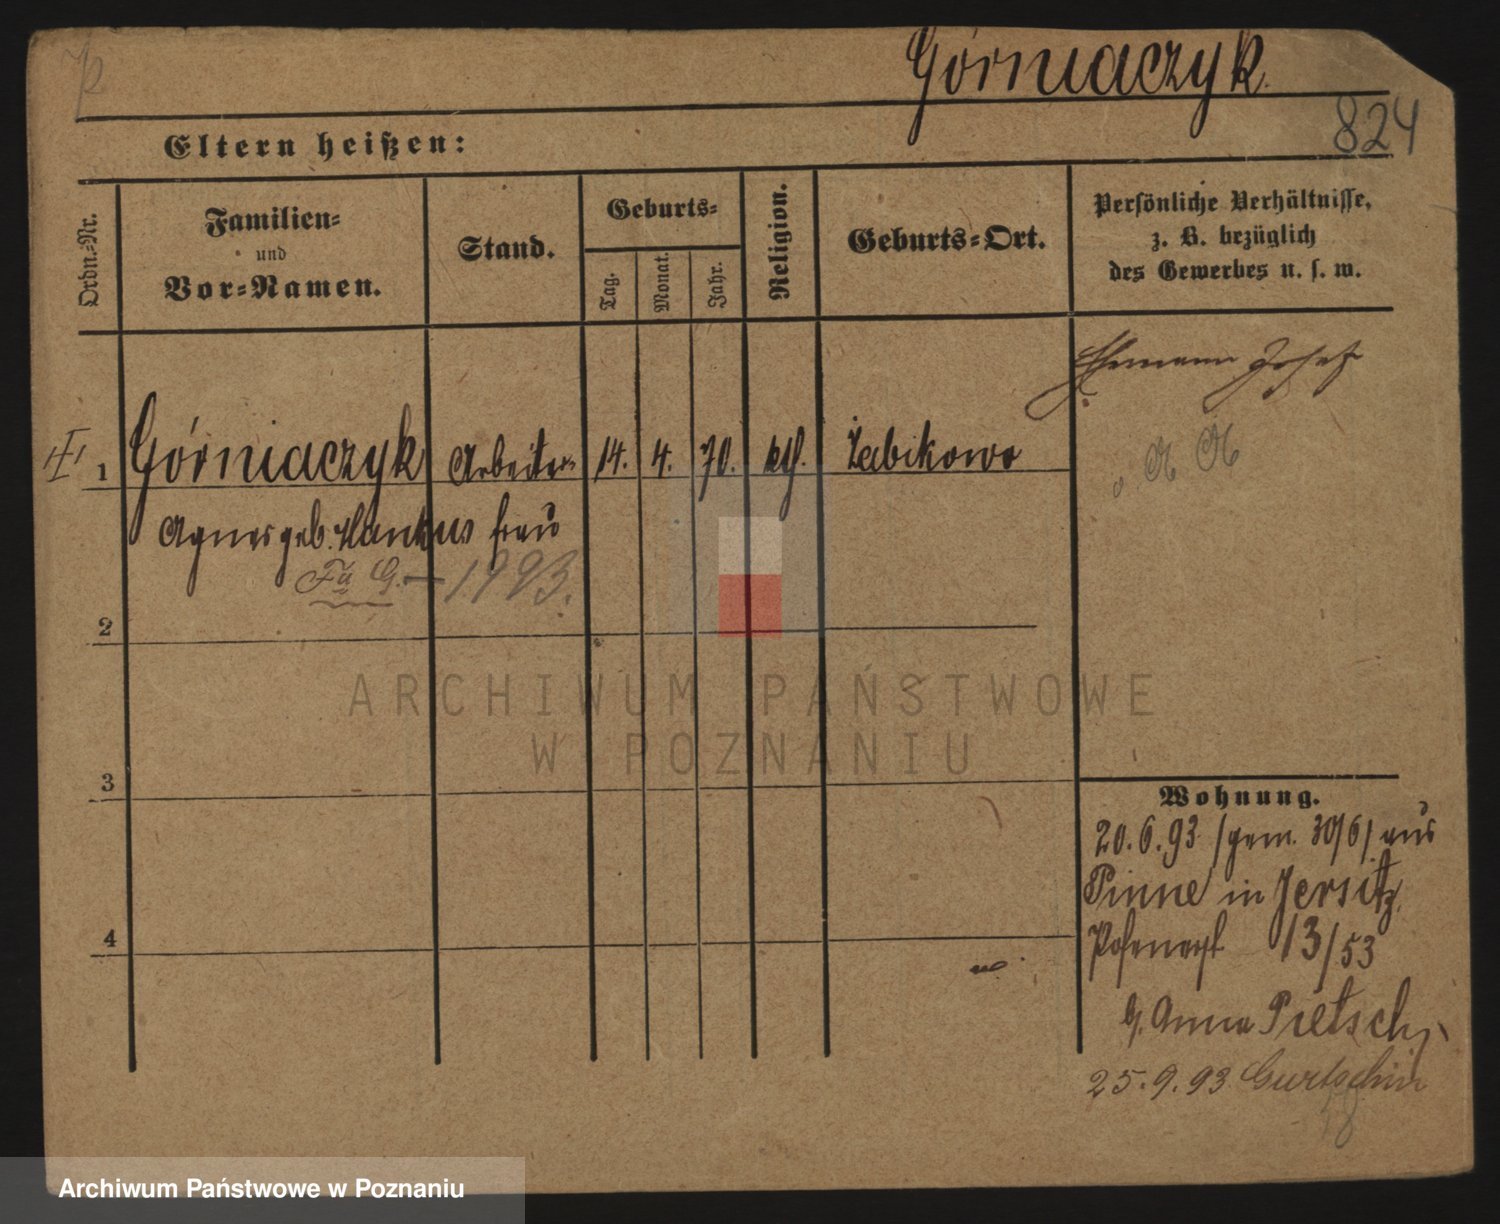 Górniaczyk.
824
Eltern heißen:
Ordn.=Nr.
Familien=
und
Vor=Namen.
Stand.
Geburts=
Tag.
Monat.
Jahr.
Religion.
Geburts=Ort.
Persönliche Verhältnisse,
z. B. bezüglich
des Gewerbes u. s. w.
Ehemann Josef
1 Górniaczyk Arbeiter= 14. 4. 70. kth. Żabikowo
Agnes geb. Hankus frau
Fa G. — 1993.
2
ARCHIWUM PAŃSTWOWE
W POZNANIU
3
4
Wohnung.
20.6.93 /gem. 30/6/ aus
Pinne in Jersitz,
Posenerst 13/53
b. Anna Pietsch
25.9.93 Gurtschin
18
Archiwum Państwowe w Poznaniu